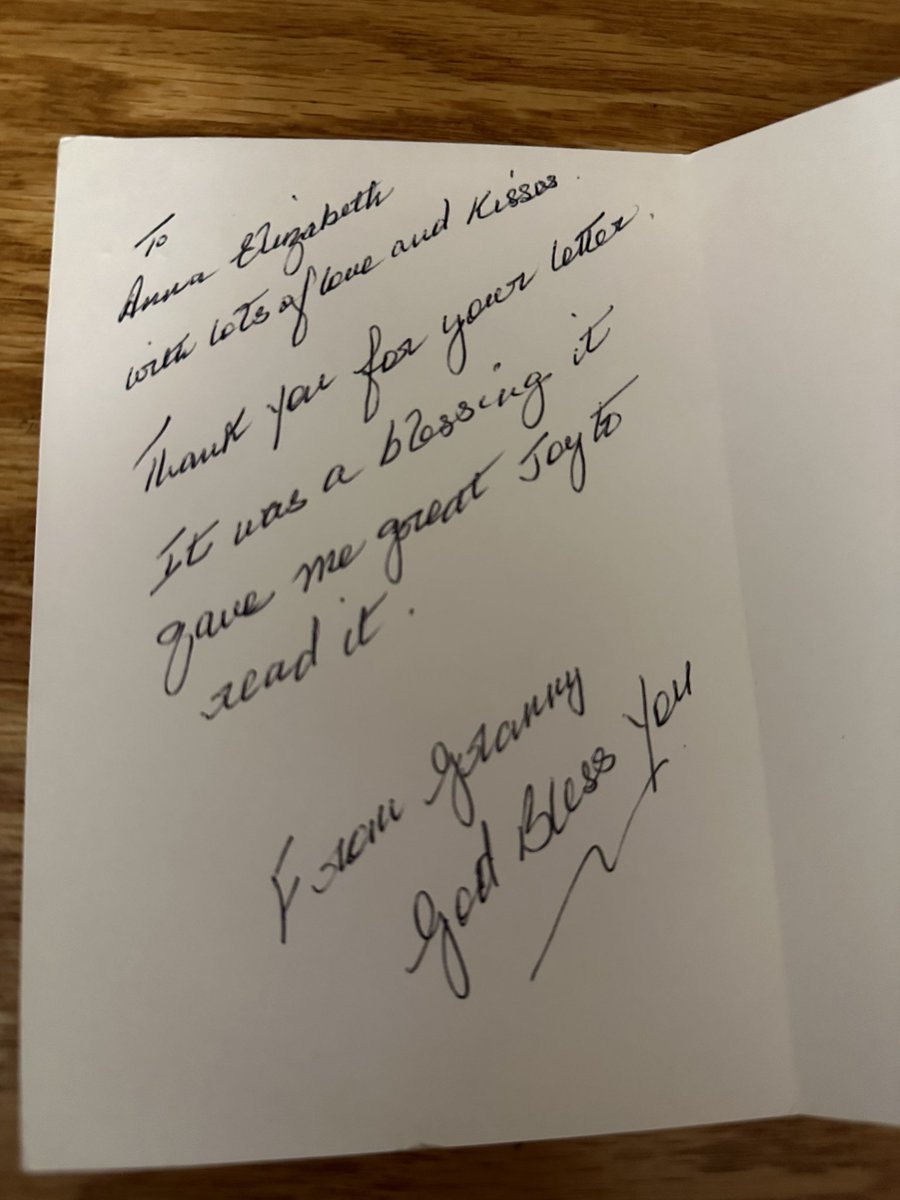 To
Anna Elizabeth
with lots of love and Kisses.
Thank you for your letter.
It was a blessing it
gave me great Joy to
read it.
From Granny
God Bless You